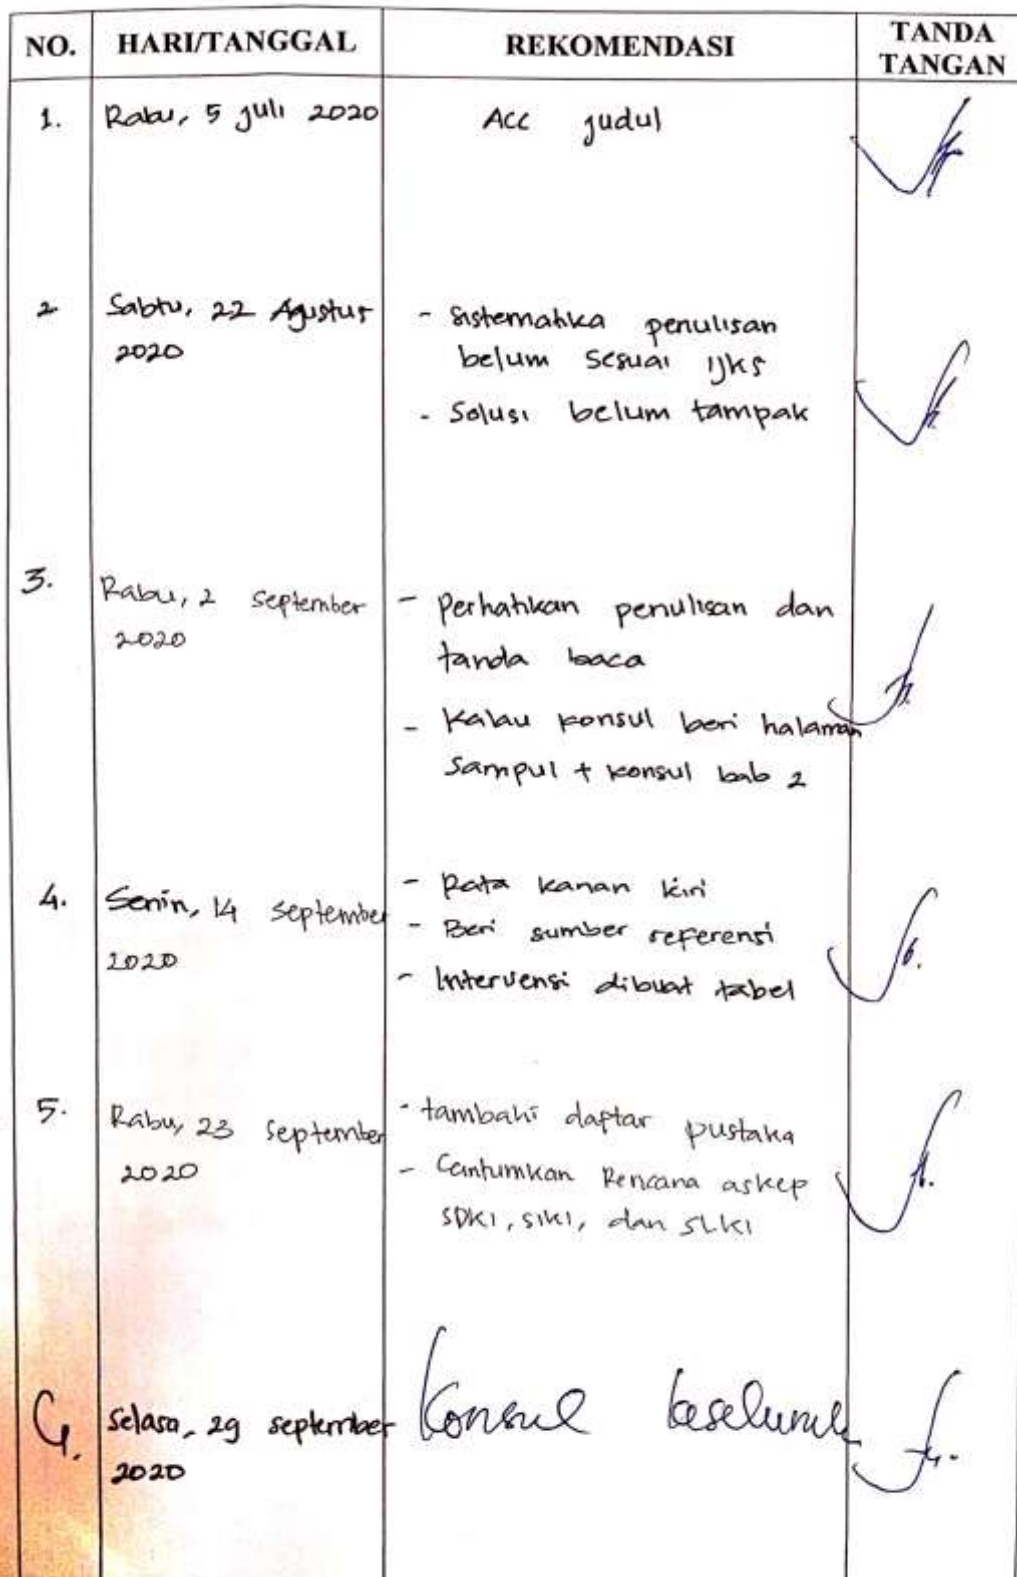 NO. HARI/TANGGAL REKOMENDASI TANDA TANGAN
1. Rabu, 5 Juli 2020 Acc judul
2 Sabtu, 22 Agustus - Sistematika penulisan
2020 belum sesuai IJKS
- Solusi belum tampak
3. Rabu, 2 September - Perhatikan penulisan dan
2020 tanda baca
- Kalau konsul beri halaman
Sampul + konsul bab 2
4. Senin, 14 September - Rata kanan kiri
2020 - Beri sumber referensi
- Intervensi dibuat tabel
5. Rabu, 23 September - tambahi daftar pustaka
2020 - Cantumkan Rencana askep
SDKI, SIKI, dan SLKI
Selasa, 29 September Konsul
2020